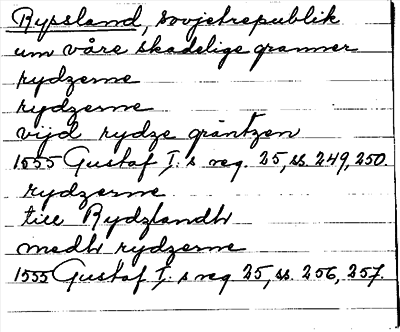 Ryssland, sovjetrepublik
um våre skadelige granner
rydzerne
rydzerne
vijd rydze gräntzen
1555 Gustaf I:s reg. 25, ss. 249, 250.
rydzerne
till Rydzlandh
medh rydzerne
1555 Gustaf I:s reg 25, ss. 256, 257.